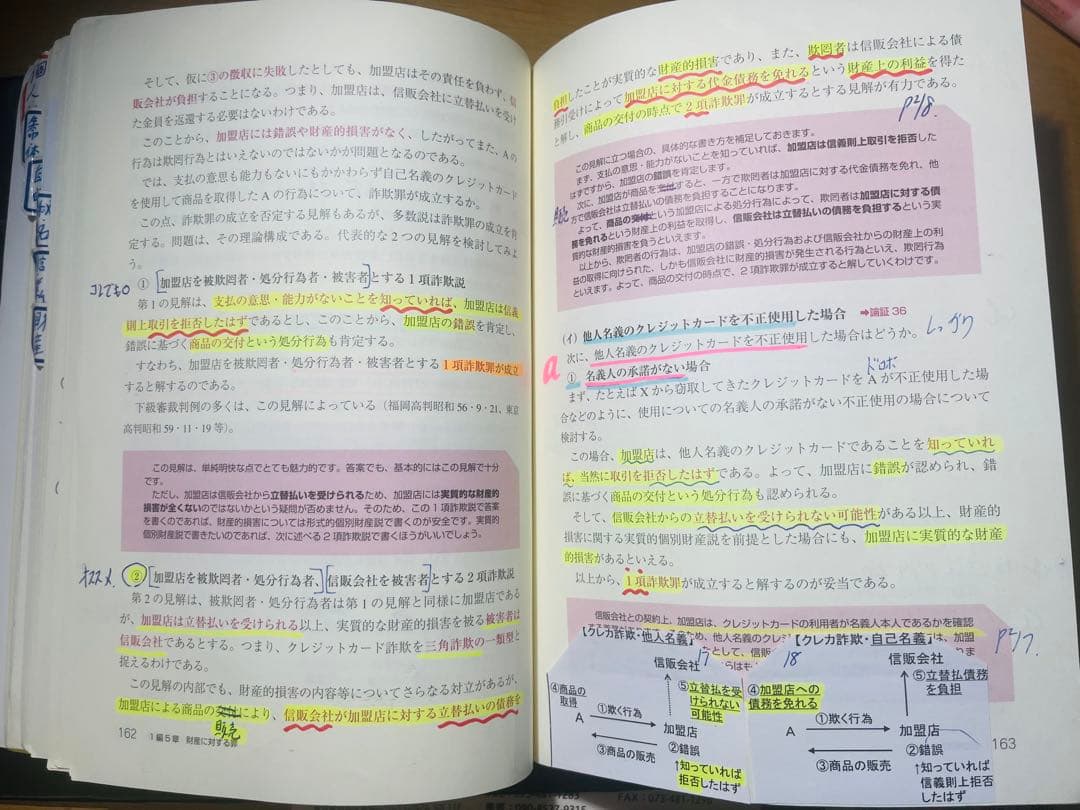 そして、仮に③の徴収に失敗したとしても、加盟店はその責任を負わず、信
販会社が負担することになる。つまり、加盟店は、信販会社に立替払いを受け
た金員を返還する必要はないわけである。
このことから、加盟店には錯誤や財産的損害がなく、したがってまた、Aの
行為は欺罔行為とはいえないのではないかが問題となるのである。
では、支払の意思も能力もないにもかかわらず自己名義のクレジットカード
を使用して商品を取得したAの行為について、詐欺罪が成立するか。
この点、詐欺罪の成立を否定する見解もあるが、多数説は詐欺罪の成立を肯
定する。問題は、その理論構成である。代表的な2つの見解を検討してみよ
う。
コレでもO
①[加盟店を被欺罔者・処分行為者・被害者]とする1項詐欺説
第1の見解は、支払の意思・能力がないことを知っていれば、加盟店は信義
則上取引を拒否したはずであるとし、このことから、加盟店の錯誤を肯定し、
錯誤に基づく商品の交付という処分行為も肯定する。
すなわち、加盟店を被欺罔者・処分行為者・被害者とする1項詐欺罪が成立
すると解するのである。
下級審裁判例の多くは、この見解によっている(福岡高判昭和56・9・21、東京
高判昭和59・11・19等)。
この見解は、単純明快な点でとても魅力的です。答案でも、基本的にはこの見解で十分
です。
ただし、加盟店は信販会社から立替払いを受けられるため、加盟店には実質的な財産的
損害が全くないのではないかという疑問が否めません。そのため、この1項詐欺説で答案
を書くのであれば、財産的損害については形式的個別財産説で書くのが安全です。実質的
個別財産説で書きたいのであれば、次に述べる2項詐欺説で書くほうがいいでしょう。
オススメ
②[加盟店を被欺罔者・処分行為者、][信販会社を被害者]とする2項詐欺説
第2の見解は、被欺罔者・処分行為者は第1の見解と同様に加盟店である
が、加盟店は立替払いを受けられる以上、実質的な財産的損害を被る被害者は
信販会社であるとする。つまり、クレジットカード詐欺を三角詐欺の一類型と
捉えるわけである。
この見解の内部でも、財産的損害の内容等についてさらなる対立があるが、
加盟店による商品の交付により、信販会社が加盟店に対する立替払いの債務を
販売
162 1編5章 財産に対する罪
負担したことが実質的な財産的損害であり、また、欺罔者は信販会社による債
務引受けによって加盟店に対する代金債務を免れるという財産上の利益を得た
と解し、商品の交付の時点で2項詐欺罪が成立するとする見解が有力である。
P218.
この見解に立つ場合の、具体的な書き方を補足しておきます。
まず、支払の意思・能力がないことを知っていれば、加盟店は信義則上取引を拒否した
はずですから、加盟店の錯誤を肯定します。
次に、加盟店が商品を交付すると、一方で欺罔者は加盟店に対する代金債務を免れ、他
方で信販会社は立替払いの債務を負担することになります。
販売
よって、商品の交付という加盟店による処分行為によって、欺罔者は加盟店に対する債
務を免れるという財産上の利益を取得し、信販会社は立替払いの債務を負担するという実
質的な財産的損害を負うといえます。
以上から、欺罔者の行為は、加盟店の錯誤・処分行為および信販会社からの財産上の利
益の取得に向けられた、しかも信販会社に財産的損害が発生される行為といえ、欺罔行為
といえます。よって、商品の交付の時点で、2項詐欺罪が成立すると解していくわけです。
(イ) 他人名義のクレジットカードを不正使用した場合 ➡論証36
次に、他人名義のクレジットカードを不正使用した場合はどうか。
a
① 名義人の承諾がない場合
ドロボ
まず、たとえばXから窃取してきたクレジットカードをAが不正使用した場
合などのように、使用についての名義人の承諾がない不正使用の場合について
検討する。
この場合、加盟店は、他人名義のクレジットカードであることを知っていれ
ば、当然に取引を拒否したはずである。よって、加盟店に錯誤が認められ、錯
誤に基づく商品の交付という処分行為も認められる。
そして、信販会社からの立替払いを受けられない可能性がある以上、財産的
損害に関する実質的個別財産説を前提とした場合にも、加盟店に実質的な財産
的損害があるといえる。
以上から、1項詐欺罪が成立すると解するのが妥当である。
信販会社との契約上、加盟店は、クレジットカードの利用者が名義人本人であるかを確認
P217.
【クレカ詐欺・他人名義】
17
信販会社
④商品の
取得
⑤立替払を受
けられない
可能性
A
①欺く行為
加盟店
③商品の販売
②錯誤
↑知っていれば
拒否したはず
【クレカ詐欺・自己名義】
18
信販会社
④加盟店への
債務を免れる
⑤立替払債務
を負担
A
①欺く行為
加盟店
③商品の販売
②錯誤
↑知っていれば
信義則上拒否
したはず
163